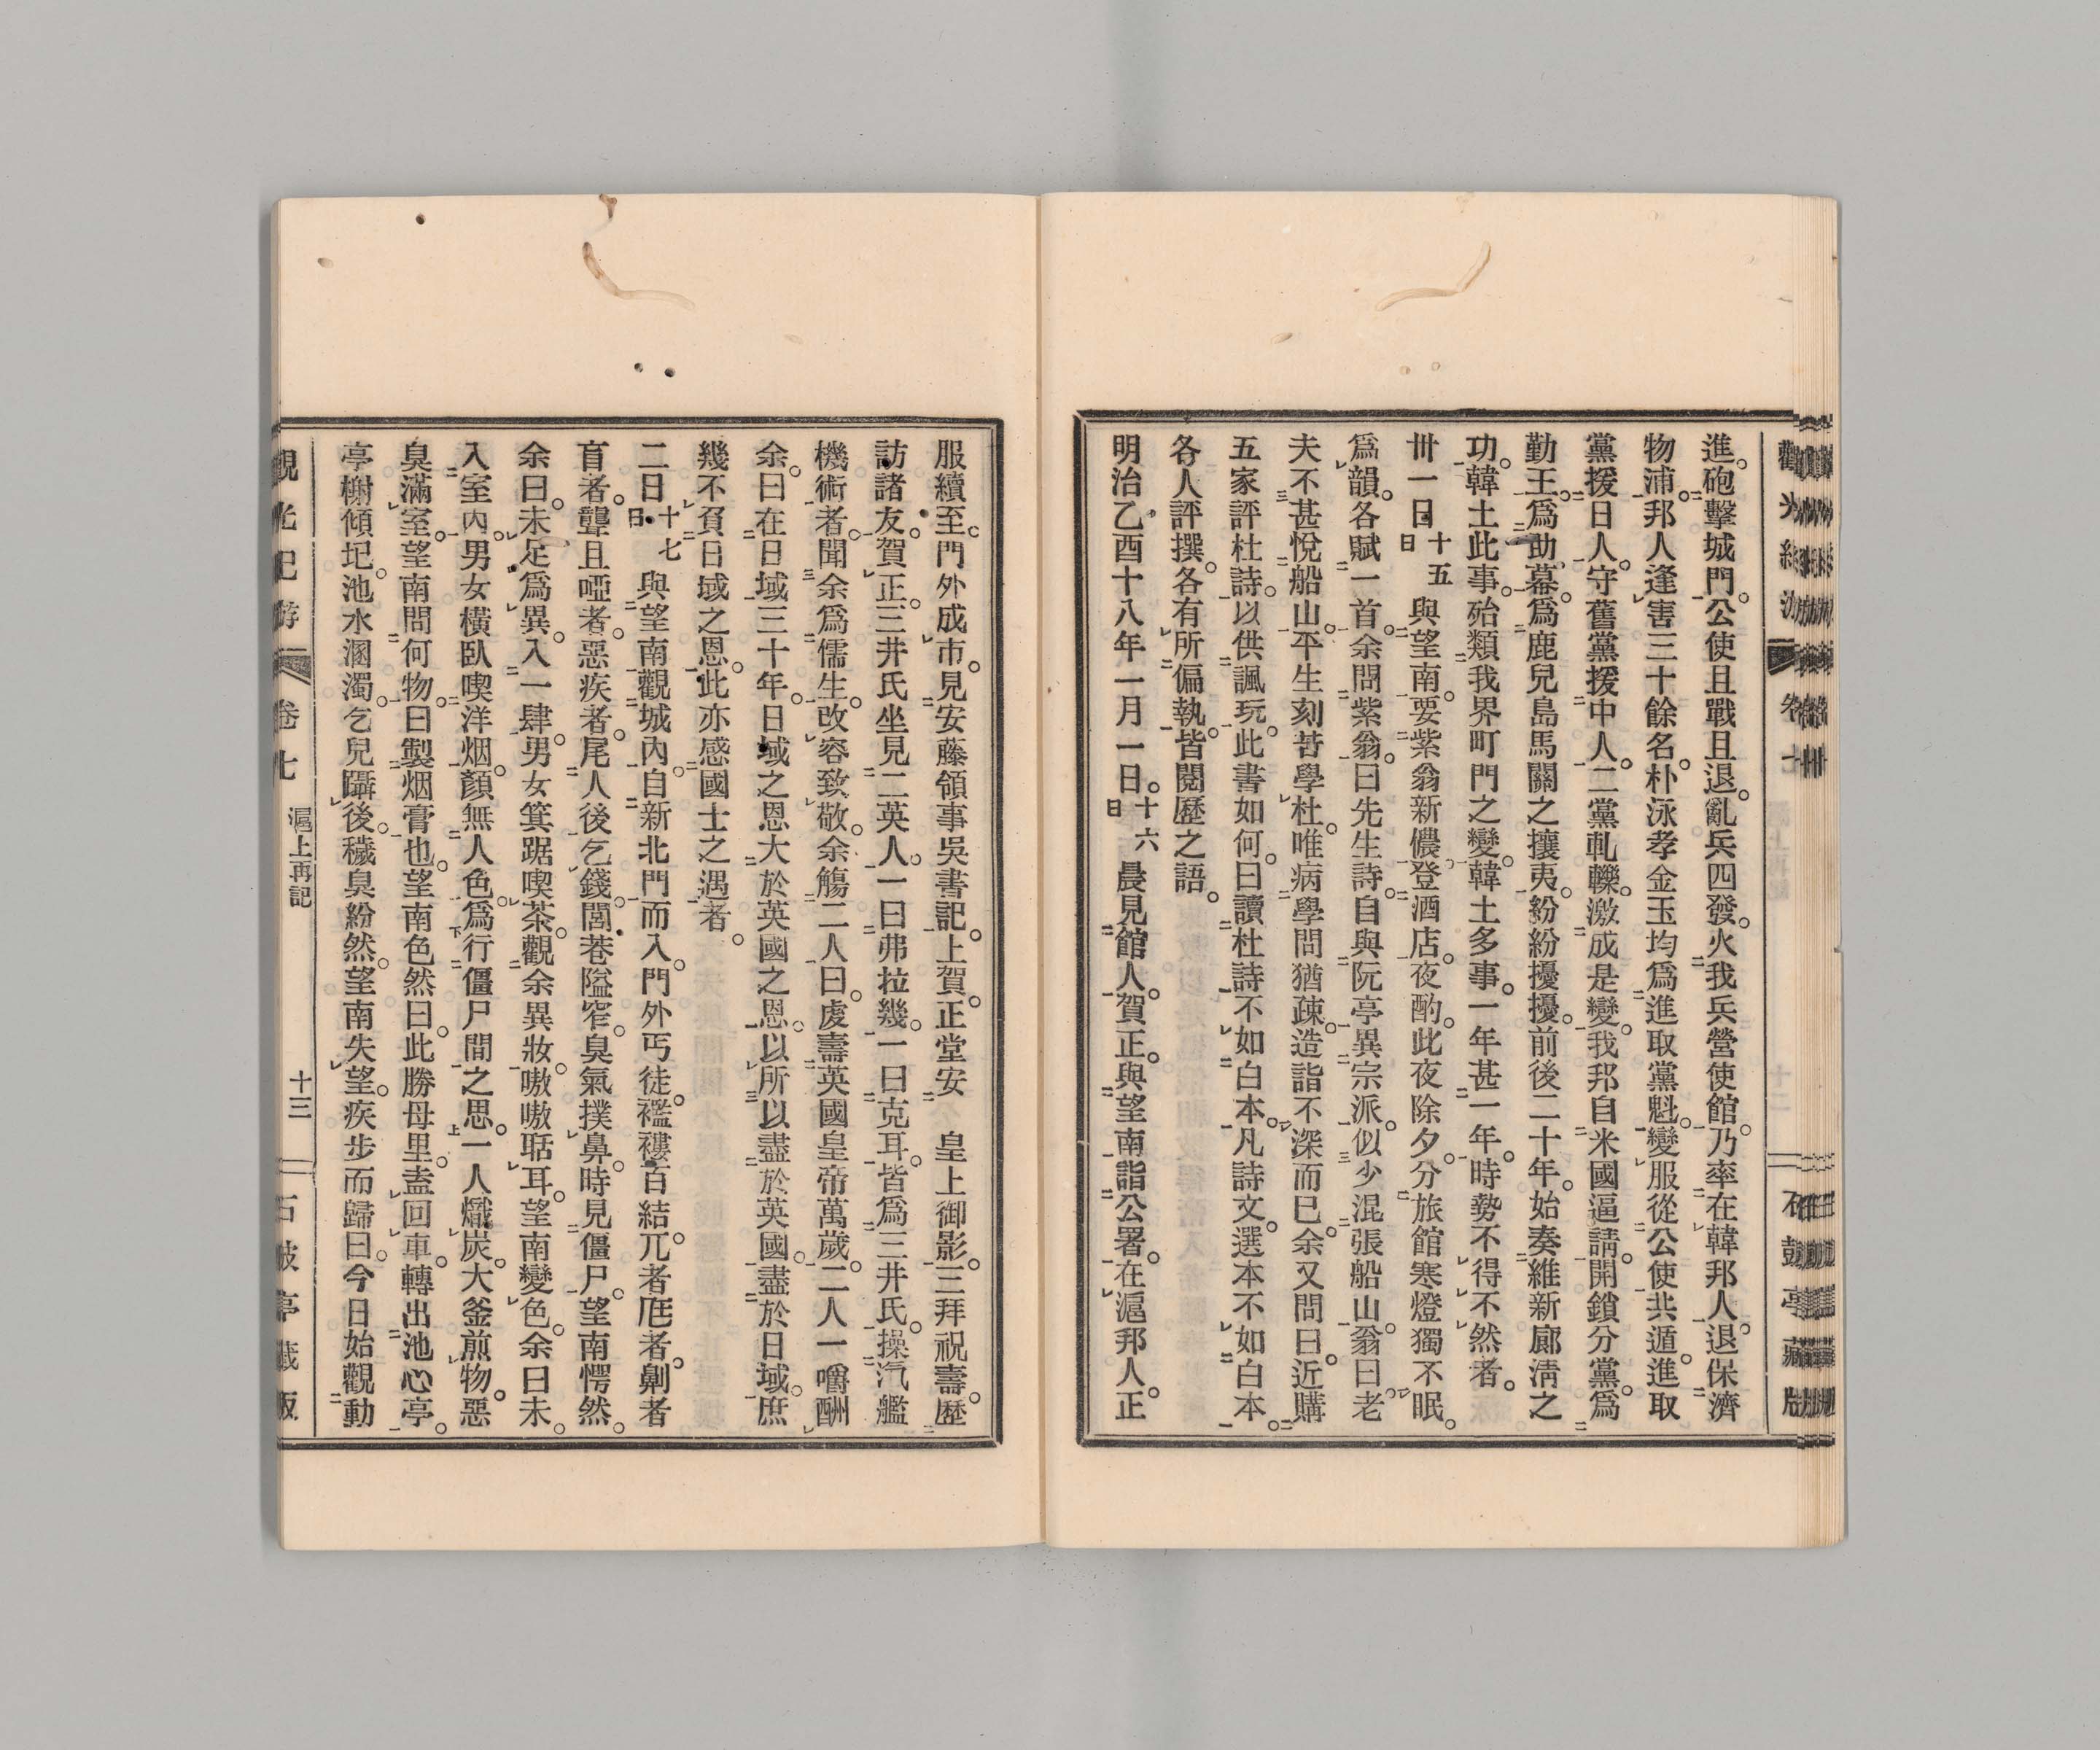 進。砲擊城門。公使且戰且退。亂兵四發。火我兵營使館。乃率在韓邦人。退保濟
物浦。邦人逢害三十餘名。朴泳孝金玉均爲進取黨魁。變服從公使共遁。進取
黨援日人。守舊黨援中人。二黨軋轢。激成是變。我邦自米國逼請。開鎖分黨。爲
勤王。爲助幕。爲鹿兒島馬關之攘夷。紛紛擾擾。前後二十年。始奏維新廓淸之
功。韓土此事。殆類我界町門之變。韓土多事。一年甚一年。時勢不得不然者。
卅一日十五日 與望南。要紫翁新儂。登酒店。夜酌。此夜除夕。分旅館寒燈獨不眠。
爲韻。各賦一首。余問紫翁。曰先生詩。自與阮亭異宗派。似少混張船山。翁曰。老
夫不甚悅船山。平生刻苦學杜。唯病學問猶疎。造詣不深而已。余又問曰。近購
五家評杜詩。以供諷玩。此書如何。曰讀杜詩不如白本。凡詩文。選本不如白本。
各人評撰。各有所偏執。皆閱歷之語。
明治乙酉十八年一月一日。十六日 晨見館人。賀正。與望南詣公署。在滬邦人。正
服續至。門外成市。見安藤領事吳書記。上賀。正堂安 皇上御影。三拜祝壽。歷
訪諸友。賀正。三井氏坐見二英人。一曰弗拉幾。一曰克耳。皆爲三井氏。操汽艦
機術者。聞余爲儒生。改容致敬。余觴二人。曰。虔壽英國皇帝萬歲。二人一嚼酬
余。曰在日域三十年。日域之恩。大於英國之恩。以所以盡於英國。盡於日域。庶
幾不負日域之恩。此亦感國士之遇者。
二日十七日 與望南觀城內。自新北門而入。門外丐徒。襤褸百結。兀者尩者。劓者
盲者。聾且啞者。惡疾者。尾人後乞錢。閭巷隘窄。臭氣撲鼻。時見僵尸。望南愕然。
余曰。未足爲異。入一肆。男女箕踞喫茶。觀余異妝。嗷嗷聒耳。望南變色。余曰未。
入室內。男女橫臥喫洋烟。顏無人色。爲行僵尸間之思。一人熾炭。大釜煎物。惡
臭滿室。望南問何物。曰製烟膏也。望南色然曰。此勝母里。盍回車。轉出池心亭。
亭榭傾圮。池水溷濁。乞兒躡後。穢臭紛然。望南失望。疾步而歸曰。今日始觀動
觀光紀游 卷七 滬上再記 十三